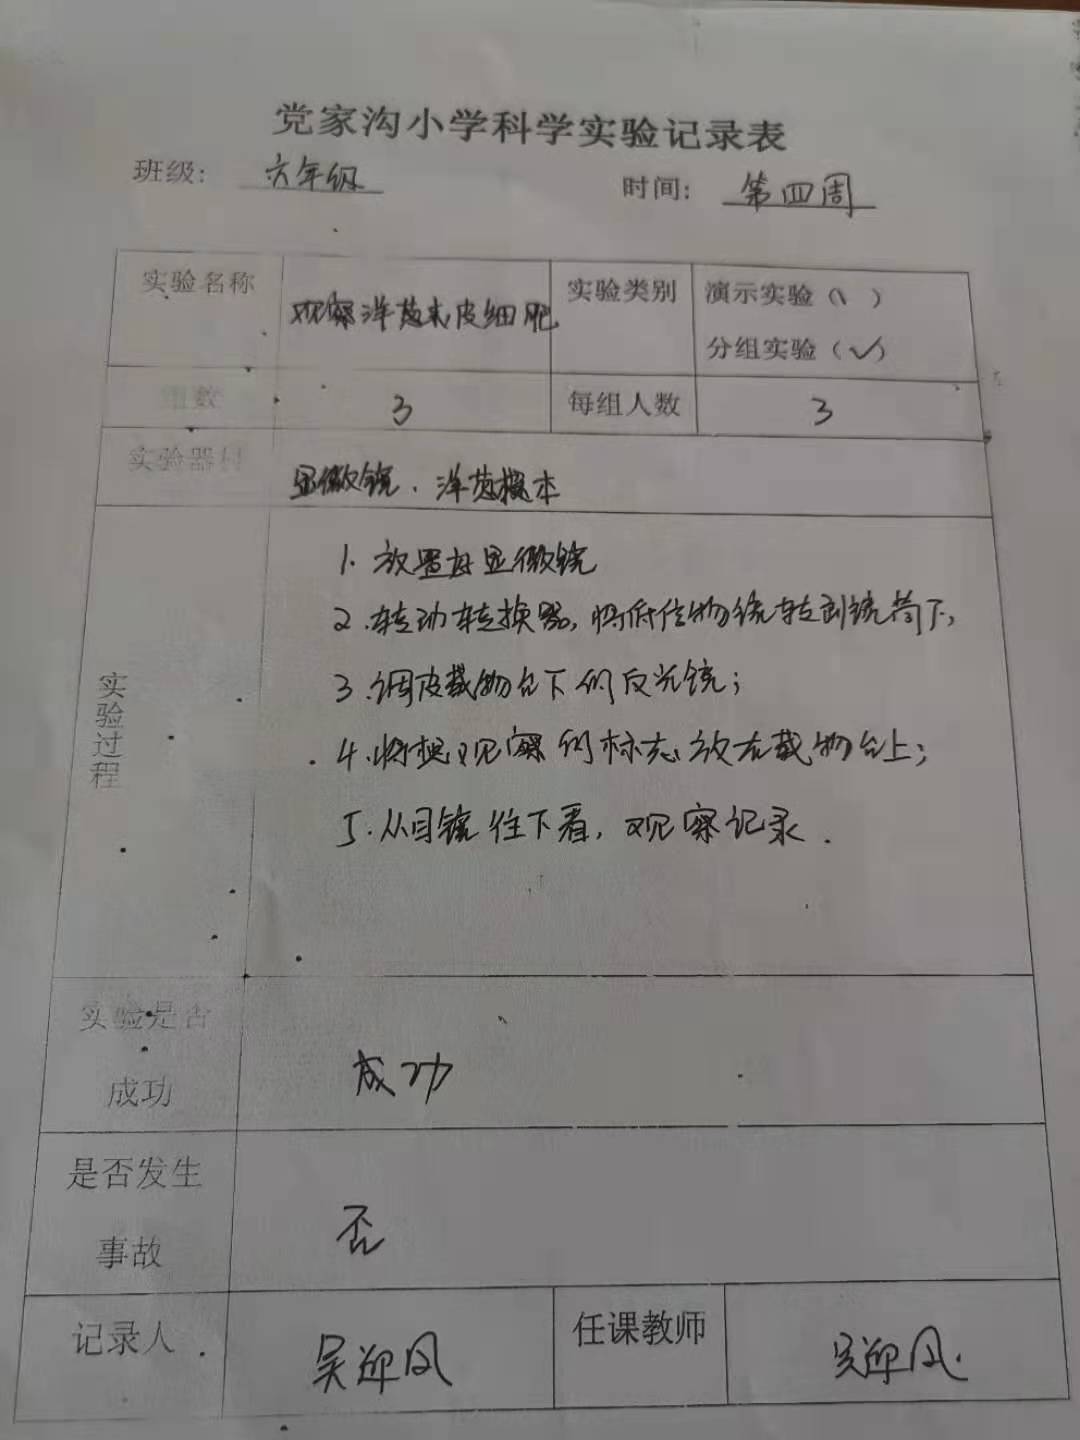 党家沟小学科学实验记录表
班级: 六年级 时间: 第四周
实验名称 观察洋葱表皮细胞 实验类别 演示实验( )
分组实验(✓)
组数 3 每组人数 3
实验器材 显微镜、洋葱标本
实验过程
1.放置好显微镜
2.转动转换器,将低倍物镜转到镜筒下;
3.调皮载物台下的反光镜;
4.将想观察的标志放在载物台上;
5.从目镜往下看,观察记录.
实验是否成功 成功
是否发生事故 否
记录人 吴迎凤 任课教师 吴迎凤